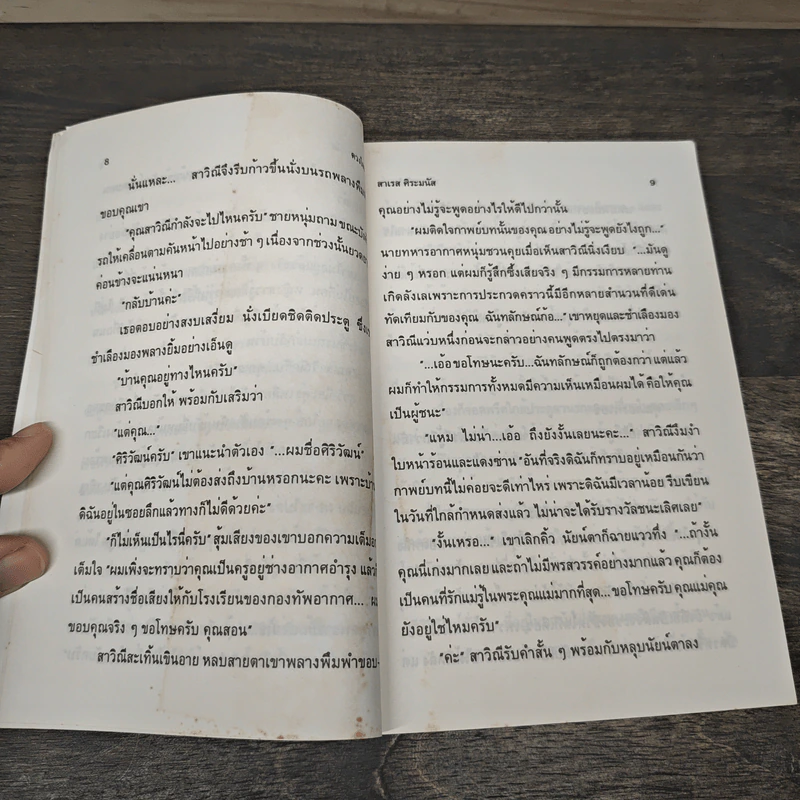 8
นั่นแหละ... สาวิณีจึงรีบก้าวขึ้นนั่งบนรถพลางพึม
ขอบคุณเขา
"คุณสาวิณีกำลังจะไปไหนครับ" ชายหนุ่มถาม ขณะบัง
รถให้เคลื่อนตามคันหน้าไปอย่างช้า ๆ เนื่องจากช่วงนั้นยวดยา
ค่อนข้างจะแน่นหนา
"กลับบ้านค่ะ"
เธอตอบอย่างสงบเสงี่ยม นั่งเบียดชิดติดประตู ซึ่งเขา
ชำเลืองมองพลางยิ้มอย่างเอ็นดู
"บ้านคุณอยู่ทางไหนครับ"
สาวิณีบอกให้ พร้อมกับเสริมว่า
"แต่คุณ..."
"ศิริวัฒน์ครับ" เขาแนะนำตัวเอง "...ผมชื่อศิริวัฒน์"
"แต่คุณศิริวัฒน์ไม่ต้องส่งถึงบ้านหรอกนะคะ เพราะบ้า
ดิฉันอยู่ในซอยลึกแล้วทางก็ไม่ดีด้วยค่ะ"
"ก็ไม่เห็นเป็นไรนี่ครับ" สุ้มเสียงของเขาบอกความเต็มอก
เต็มใจ "ผมเพิ่งจะทราบว่าคุณเป็นครูอยู่ช่างอากาศอำรุง แล้วก็
เป็นคนสร้างชื่อเสียงให้กับโรงเรียนของกองทัพอากาศ... ผม
ขอบคุณจริง ๆ ขอโทษครับ คุณสอน"
สาวิณีสะเทิ้นเขินอาย หลบสายตาเขาพลางพึมพำขอบ
สาเรส ศิระมนัส
๙
คุณอย่างไม่รู้จะพูดอย่างไรให้ดีไปกว่านั้น
"ผมติดใจกาพย์บทนั้นของคุณ อย่างไม่รู้จะพูดยังไงถูก..."
นายทหารอากาศหนุ่มชวนคุยเมื่อเห็นสาวิณีนิ่งเงียบ "...มันดู
ง่าย ๆ หรอก แต่ผมก็รู้สึกซึ้งเสียจริง ๆ มีกรรมการหลายท่าน
เกิดลังเลเพราะการประกวดคราวนี้มีอีกหลายสำนวนที่ดีเด่น
ทัดเทียมกับของคุณ ฉันทลักษณ์ก้อ..." เขาหยุดและชำเลืองมอง
สาวิณีแว่บหนึ่งก่อนจะกล่าวอย่างคนพูดตรงไปตรงมาว่า
"...เอ้อ ขอโทษนะครับ...ฉันทลักษณ์ก็ถูกต้องกว่า แต่แล้ว
ผมก็ทำให้กรรมการทั้งหมดมีความเห็นเหมือนผมได้ คือให้คุณ
เป็นผู้ชนะ"
"แหม ไม่น่า...เอ้อ ถึงยังงั้นเลยนะคะ..." สาวิณีงึมงำ
ใบหน้าร้อนและแดงซ่าน "อันที่จริงดิฉันก็ทราบอยู่เหมือนกันว่า
กาพย์บทนี้ไม่ค่อยจะดีเท่าไหร่ เพราะดิฉันมีเวลาน้อย รีบเขียน
ในวันที่ใกล้กำหนดส่งแล้ว ไม่น่าจะได้รับรางวัลชนะเลิศเลย"
"งั้นเหรอ..." เขาเลิกคิ้ว นัยน์ตาฉายแววทึ่ง "...ถ้างั้น
คุณนี่เก่งมากเลย และถ้าไม่มีพรสวรรค์อย่างมากแล้ว คุณก็ต้อง
เป็นคนที่รักแม่รู้ในพระคุณแม่มากที่สุด... ขอโทษครับ คุณแม่คุณ
ยังอยู่ใช่ไหมครับ"
"ค่ะ" สาวิณีรับคำสั้น ๆ พร้อมกับหลุบนัยน์ตาลง